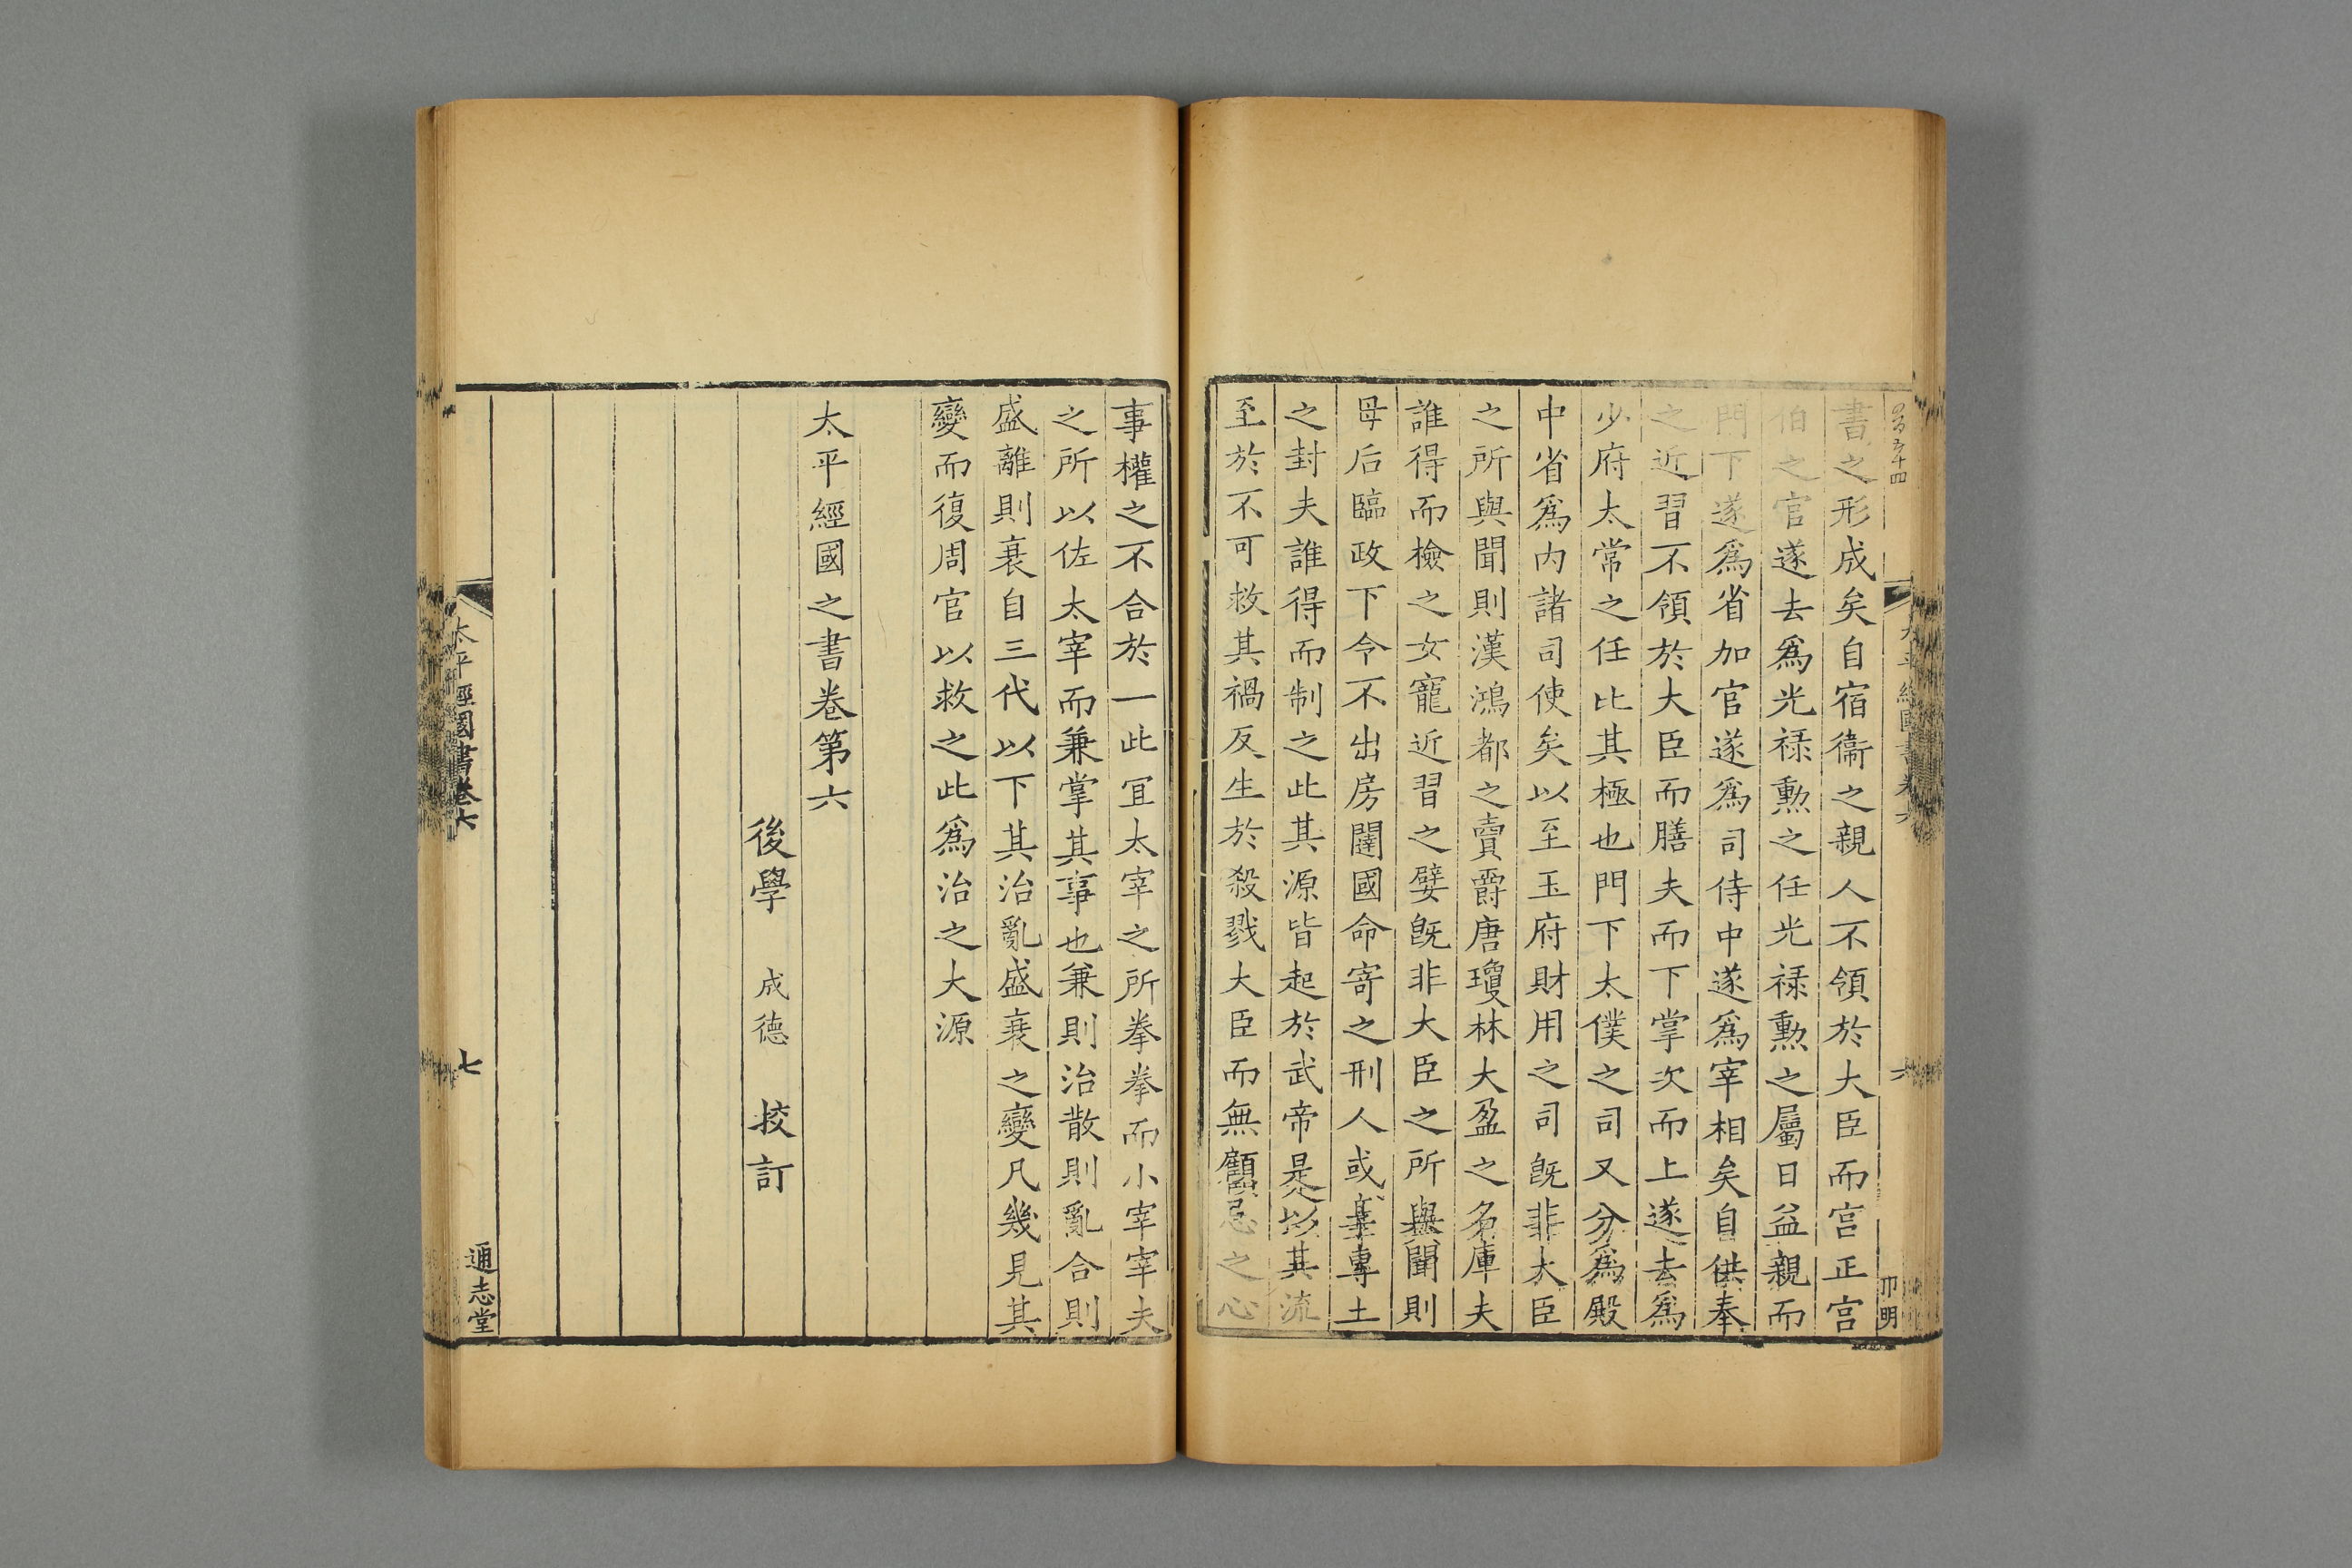 書之形成矣自宿衞之親人不領於大臣而宫正宫
伯之官遂去爲光禄勲之任光禄勲之屬日益親而
門下遂爲省加官遂爲司侍中遂爲宰相矣自供奉
之近習不領於大臣而膳夫而下掌次而上遂去爲
少府太常之任比其極也門下太僕之司又分爲殿
中省爲内諸司使矣以至玉府財用之司旣非大臣
之所與聞則漢鴻都之賣爵唐瓊林大盈之名庫夫
誰得而檢之女寵近習之嬖旣非大臣之所與聞則
母后臨政下令不出房闥國命寄之刑人或摹專土
之封夫誰得而制之此其源皆起於武帝是以其流
至於不可救其禍反生於殺戮大臣而無顧忌之心
事權之不合於一此宜太宰之所拳拳而小宰宰夫
之所以佐太宰而兼掌其事也兼則治散則亂合則
盛離則衰自三代以下其治亂盛衰之變凡幾見其
變而復周官以救之此爲治之大源
太平經國之書卷第六
後學 成德 挍訂
太平經國書卷六
七
通志堂